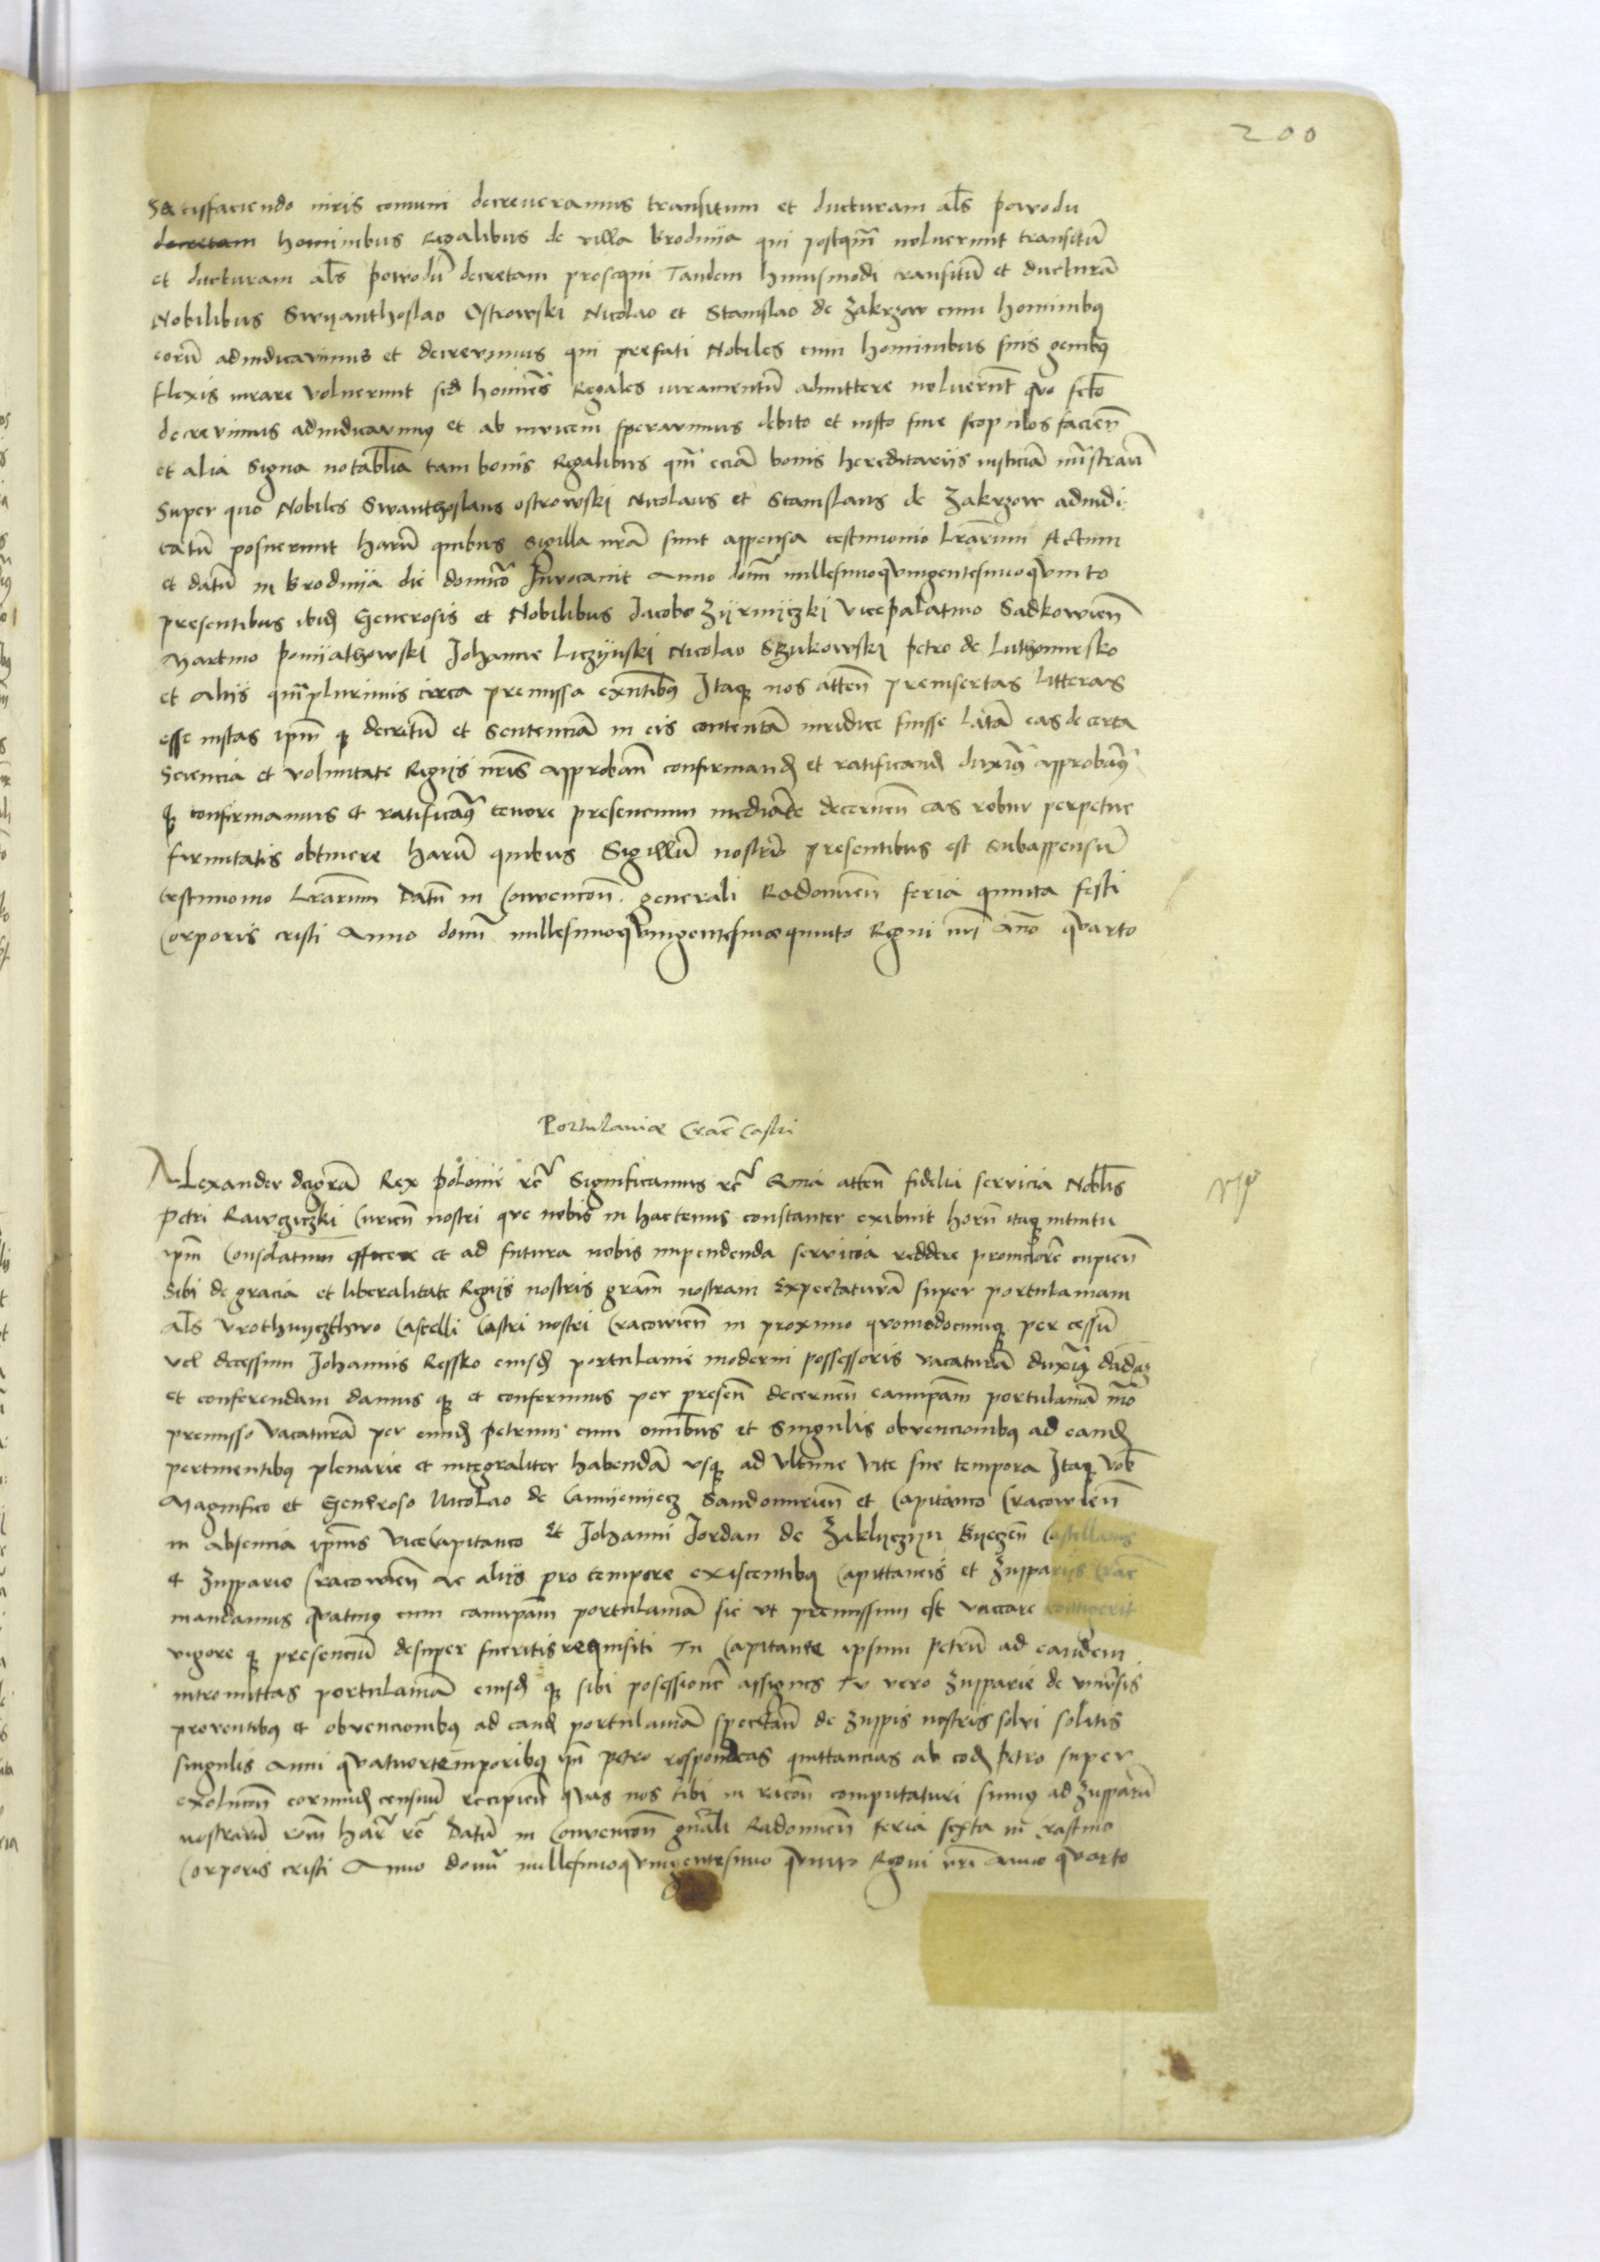 200
Satisfaciendo iuris comuni decreveramus transitum et ducturam als powodu
decretam hominibus Regalibus de villa Brodnija qui postqm̄ noluerunt transitū
et ducturam als powodū decretam prosequi Tandem huiusmodi transitū et ducturā
Nobilibus Swyanthoslao Ostrowski Nicolao et Stanislao de Zakrzow cum hominibus
eorū adiudicavimus et decrevimus qui prefati Nobiles cum hominibus suis genibus
flexis iurare voluerunt sed homines Regales iuramentū admittere noluerūt quo fcto
decrevimus adiudicavimus et ab invicem speravimus debito et iusto fine scopulos facien̄
et alia Signa notablia tam bonis Regalibus qm̄ eciā bonis hereditariis iusticiā mīstrari
Super quo Nobiles Swanthoslaus ostrowski Nicolaus et Stanislaus de Zakrzow adiudi
catū posuerunt harū quibus Sigilla nrā sunt appensa testimonio Lrarum Actum
et datū in Brodnija die domico Invocavit Anno domi millesimoqvingentesimoqvinto
presentibus ibid Generosis et Nobilibus Jacobo Zijrnijczki Vicepalatino Sadkowien̄
Martino Ponijathowski Johanne Liczijnski Nicolao Szukowski Petro de Luthomirsko
et Aliis qm̄plurimis circa premissa exn̄tibus Itaque nos atten̄ preinsertas litteras
esse iustas ipm̄ que decretū et Sentenciā in eis contentā iuridice fuisse latā eas de certa
Sciencia et voluntate Regiis nris approban̄ confirmand et ratificand duxim9 approbam9
que confirmamus et ratificam9 tenore presencium mediāte decernen̄ eas robur perpetue
firmitatis obtinere harū quibus Sigillū nostrū presentibus est Subappensū
testimonio Lrarum Datū in Convencōn generali Radomien̄ feria quinta festi
Corporis cristi Anno domi millesimoqvingentesimoquinto Regni nri Āno qvarto
Portulaniae Crac Castri
Alexander deigrā Rex Polonie rc Significamus rc Quia atten̄ fidelia servicia Noblis
Petri Rawczijczki Curien̄ nostri que nobis in hactenus constanter exibuit horū itaque intuitu
ipm̄ Consolatum efficere et ad futura nobis impendenda servicia reddere promciorē cupien̄
Sibi de gracia et liberalitate Regiis nostris grām nostram Expectaturā super portulaniam
als Vrothnijczthwo Castelli Castri nostri Cracowien̄ in proximo qvomodocumque per cessū
vel decessum Johannis Ressko eiusd portulanie moderni possessoris vacaturā duxim9 dādā
et conferendam damus que et conferimus per presen̄ decernen̄ eamipām portulaniā mō
premisso vacaturā per eund Petrum cum omībus et Singulis obvencionibus ad eand
pertinentibus plenarie et integraliter habendā usque ad Ultime Vite sue tempora Itaque vob
Magnifico et Generoso Nicolao de Camijenijecz Sandomirien̄ et Capitaneo Cracowien̄
in absencia ipius Vicecapitaneo Et Johanni Jordan de Zaklijczijn Bijeczen̄ Castellanis
et Zuppario Cracowien̄ Ac aliis pro tempore existentibus Capittaneis et Zuppariis Crac
mandamus qvatinus cum eamipām portulaniā sic ut premissum est vaccare contigerit
vigore que presenciū desuper fueritis requisiti Tu Capitanee ipsum Petrū ad eandem
intromittas portulaniā eiusd que sibi posessionē assignes Tu vero Zupparie de universis
proventibus et obvencionibus ad eand portulaniā spectān̄ de Zuppis nostris solvi solitis
singulis anni qvatuortemporibus ipi Petro respondeas quittancias ab eod Petro super
exolucōn eorund censuū recipien̄ quas nos tibi in racōn computaturi sumus ad Zupparū
nostrarū rom̄ har rc Datū in Convencōn gnāli Radomien̄ feria sexta in Crastino
Corporis cristi Anno domi millesimoqvingentesimo qvinto Regni nri Anno qvarto